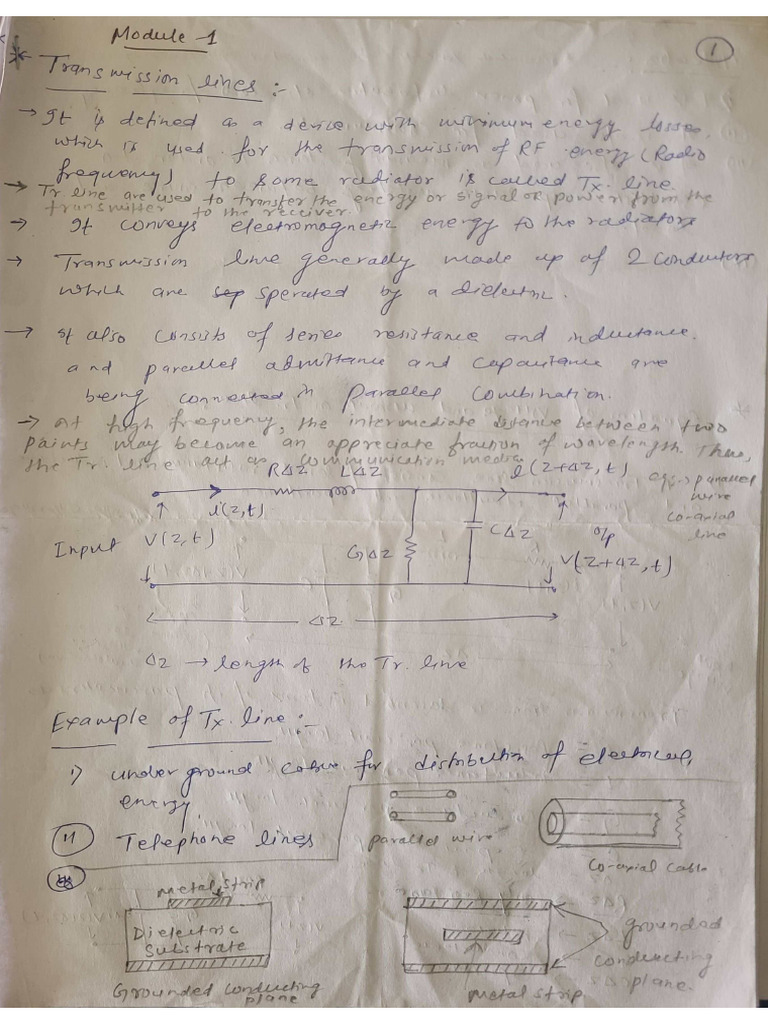 Module-1
1
* Transmission lines:-
→ It is defined as a device with minimum energy losses.
which is used for the transmission of RF energy (Radio
frequency) to some radiator is called Tx. line.
→ Tr. line are used to transfer the energy or signal or power from the
transmitter to the receiver.
→ It conveys electromagnetic energy to the radiators
→ Transmission line generally made up of 2 conductors
which are sep sperated by a dielectric.
→ It also consists of series resistance and inductance.
and parallel admittance and capacitance are
being connected in parallel combination.
→ At high frequency, the intermediate distance between two
points may become an appreciate fraction of wavelength. Thus,
the Tr. line act as communication media.
RΔZ LΔZ i(Z+ΔZ, t)
eg:- parallel
wire
co-axial
line
i(Z,t)
Input V(Z,t) GΔZ CΔZ o/p
V(Z+ΔZ,t)
ΔZ
ΔZ → length of the Tr. line
Example of Tx. line:-
i) underground cable for distribution of electrical
energy.
ii) Telephone lines
parallel wire
Co-axial cable
metal strip
Dielectric
Substrate
Grounded conducting
plane
grounded
conducting
plane.
metal strip